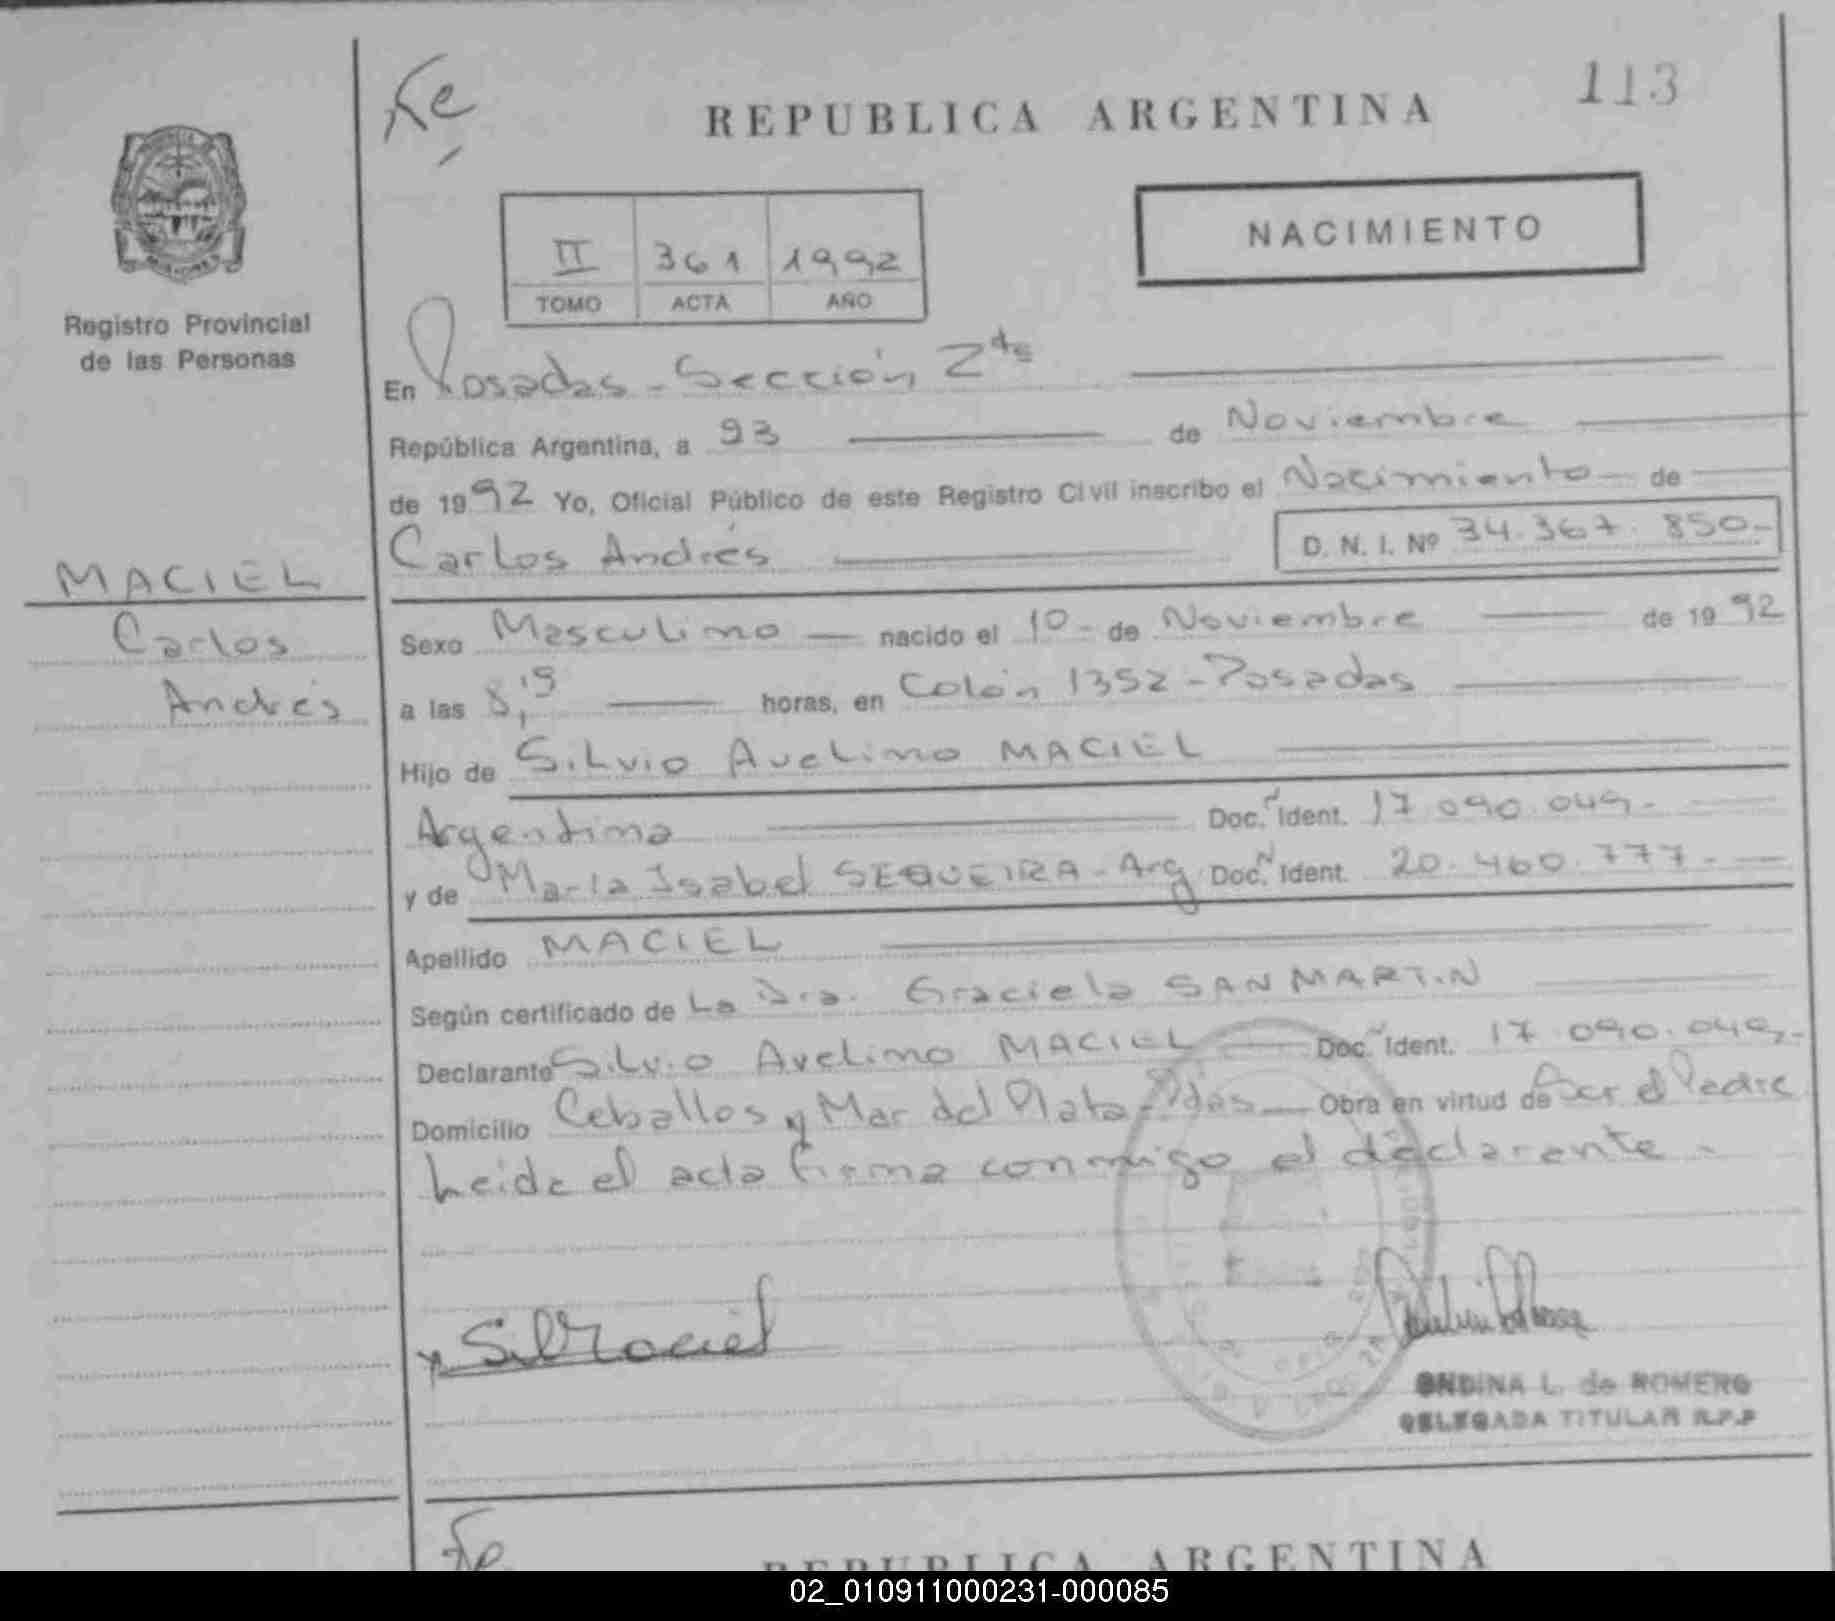 Fe
REPUBLICA ARGENTINA
113
NACIMIENTO
II 361 1992
TOMO ACTA AÑO
Registro Provincial
de las Personas
En Posadas - Sección 2da
República Argentina, a 23 de Noviembre
de 1992 Yo, Oficial Público de este Registro Civil inscribo el Nacimiento de
Carlos Andrés D. N. I. Nº 34.367.850-
MACIEL
Carlos
Andrés
Sexo Masculino nacido el 10 - de Noviembre de 1992
a las 8,15 horas, en Colón 1352 - Posadas
Hijo de Silvio Avelino MACIEL
Argentino Doc. Ident. 17.090.049.-
y de María Isabel SEQUEIRA - Arg Doc. Ident. 20.460.777.-
Apellido MACIEL
Según certificado de La Dra. Graciela SAN MARTIN
Declarante Silvio Avelino MACIEL Doc. Ident. 17.090.049.-
Domicilio Ceballos y Mar del Plata - Pdas Obra en virtud de Ser el Padre
Leida el acta firma conmigo el declarante.
Sil Maciel
ONDINA L. de ROMERO
DELEGADA TITULAR R.P.P
Fe
REPUBLICA ARGENTINA
02_010911000231-000085